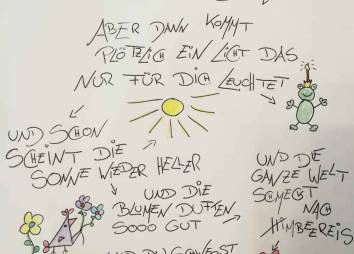 ABER DANN KOMMT
PLÖTZLICH EIN LICHT DAS
NUR FÜR DICH LEUCHTET
UND SCHON
SCHEINT DIE
SONNE WIEDER HELLER
UND DIE
BLUMEN DUFTEN
SOOO GUT
UND DIE
GANZE WELT
SCHMECKT
NACH
HIMBEEREIS